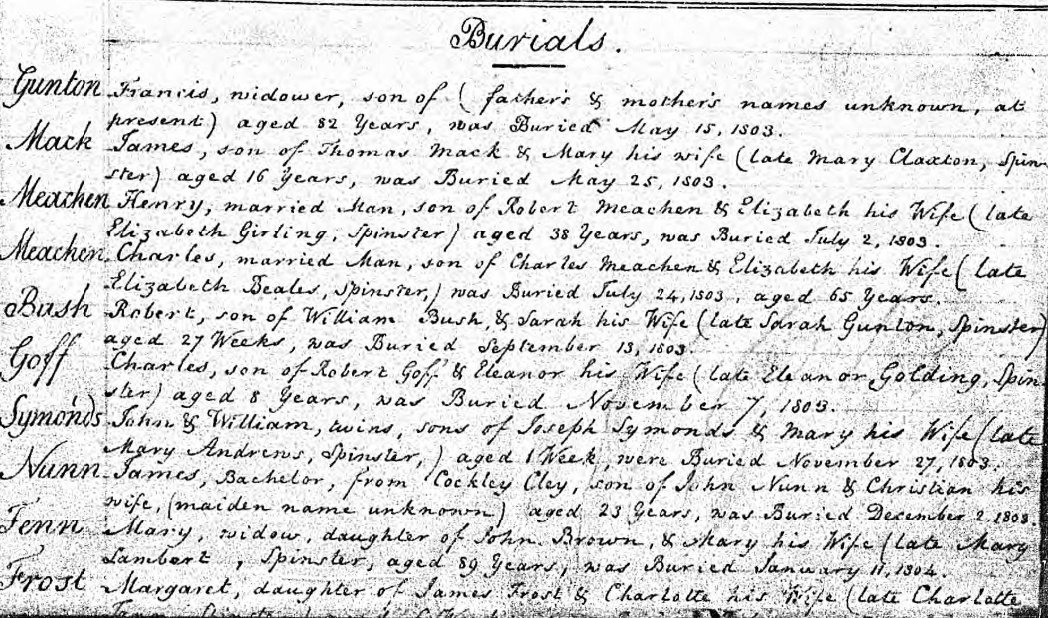 Burials.
Gunton Francis, widower, son of ( father's & mother's names unknown, at
present) aged 82 Years, was Buried May 15, 1803.
Mack James, son of Thomas Mack & Mary his wife (late Mary Claxton, Spin-
ster) aged 16 Years, was Buried May 25, 1803.
Meachen Henry, married Man, son of Robert Meachen & Elizabeth his Wife (late
Elizabeth Girling, Spinster) aged 38 Years, was Buried July 2, 1803.
Meachen Charles, married Man, son of Charles Meachen & Elizabeth his Wife (late
Elizabeth Beales, Spinster,) was Buried July 24, 1803, aged 65 Years.
Bush Robert, son of William Bush, & Sarah his Wife (late Sarah Gunton, Spinster)
aged 27 Weeks, was Buried September 13, 1803.
Goff Charles, son of Robert Goff & Eleanor his Wife (late Eleanor Golding, Spin-
ster) aged 8 Years, was Buried November 7, 1803.
Symonds John & William, twins, sons of Joseph Symonds & Mary his Wife (late
Mary Andrews, Spinster,) aged 1 Week, were Buried November 27, 1803.
Nunn James, Bachelor, from Cockley Cley, son of John Nunn & Christian his
wife, (maiden name unknown) aged 23 Years, was Buried December 2 1803.
Fenn Mary, widow, daughter of John Brown, & Mary his Wife (late Mary
Lambert, Spinster, aged 89 Years, was Buried January 11, 1804.
Frost Margaret, daughter of James Frost & Charlotte his Wife (late Charlotte